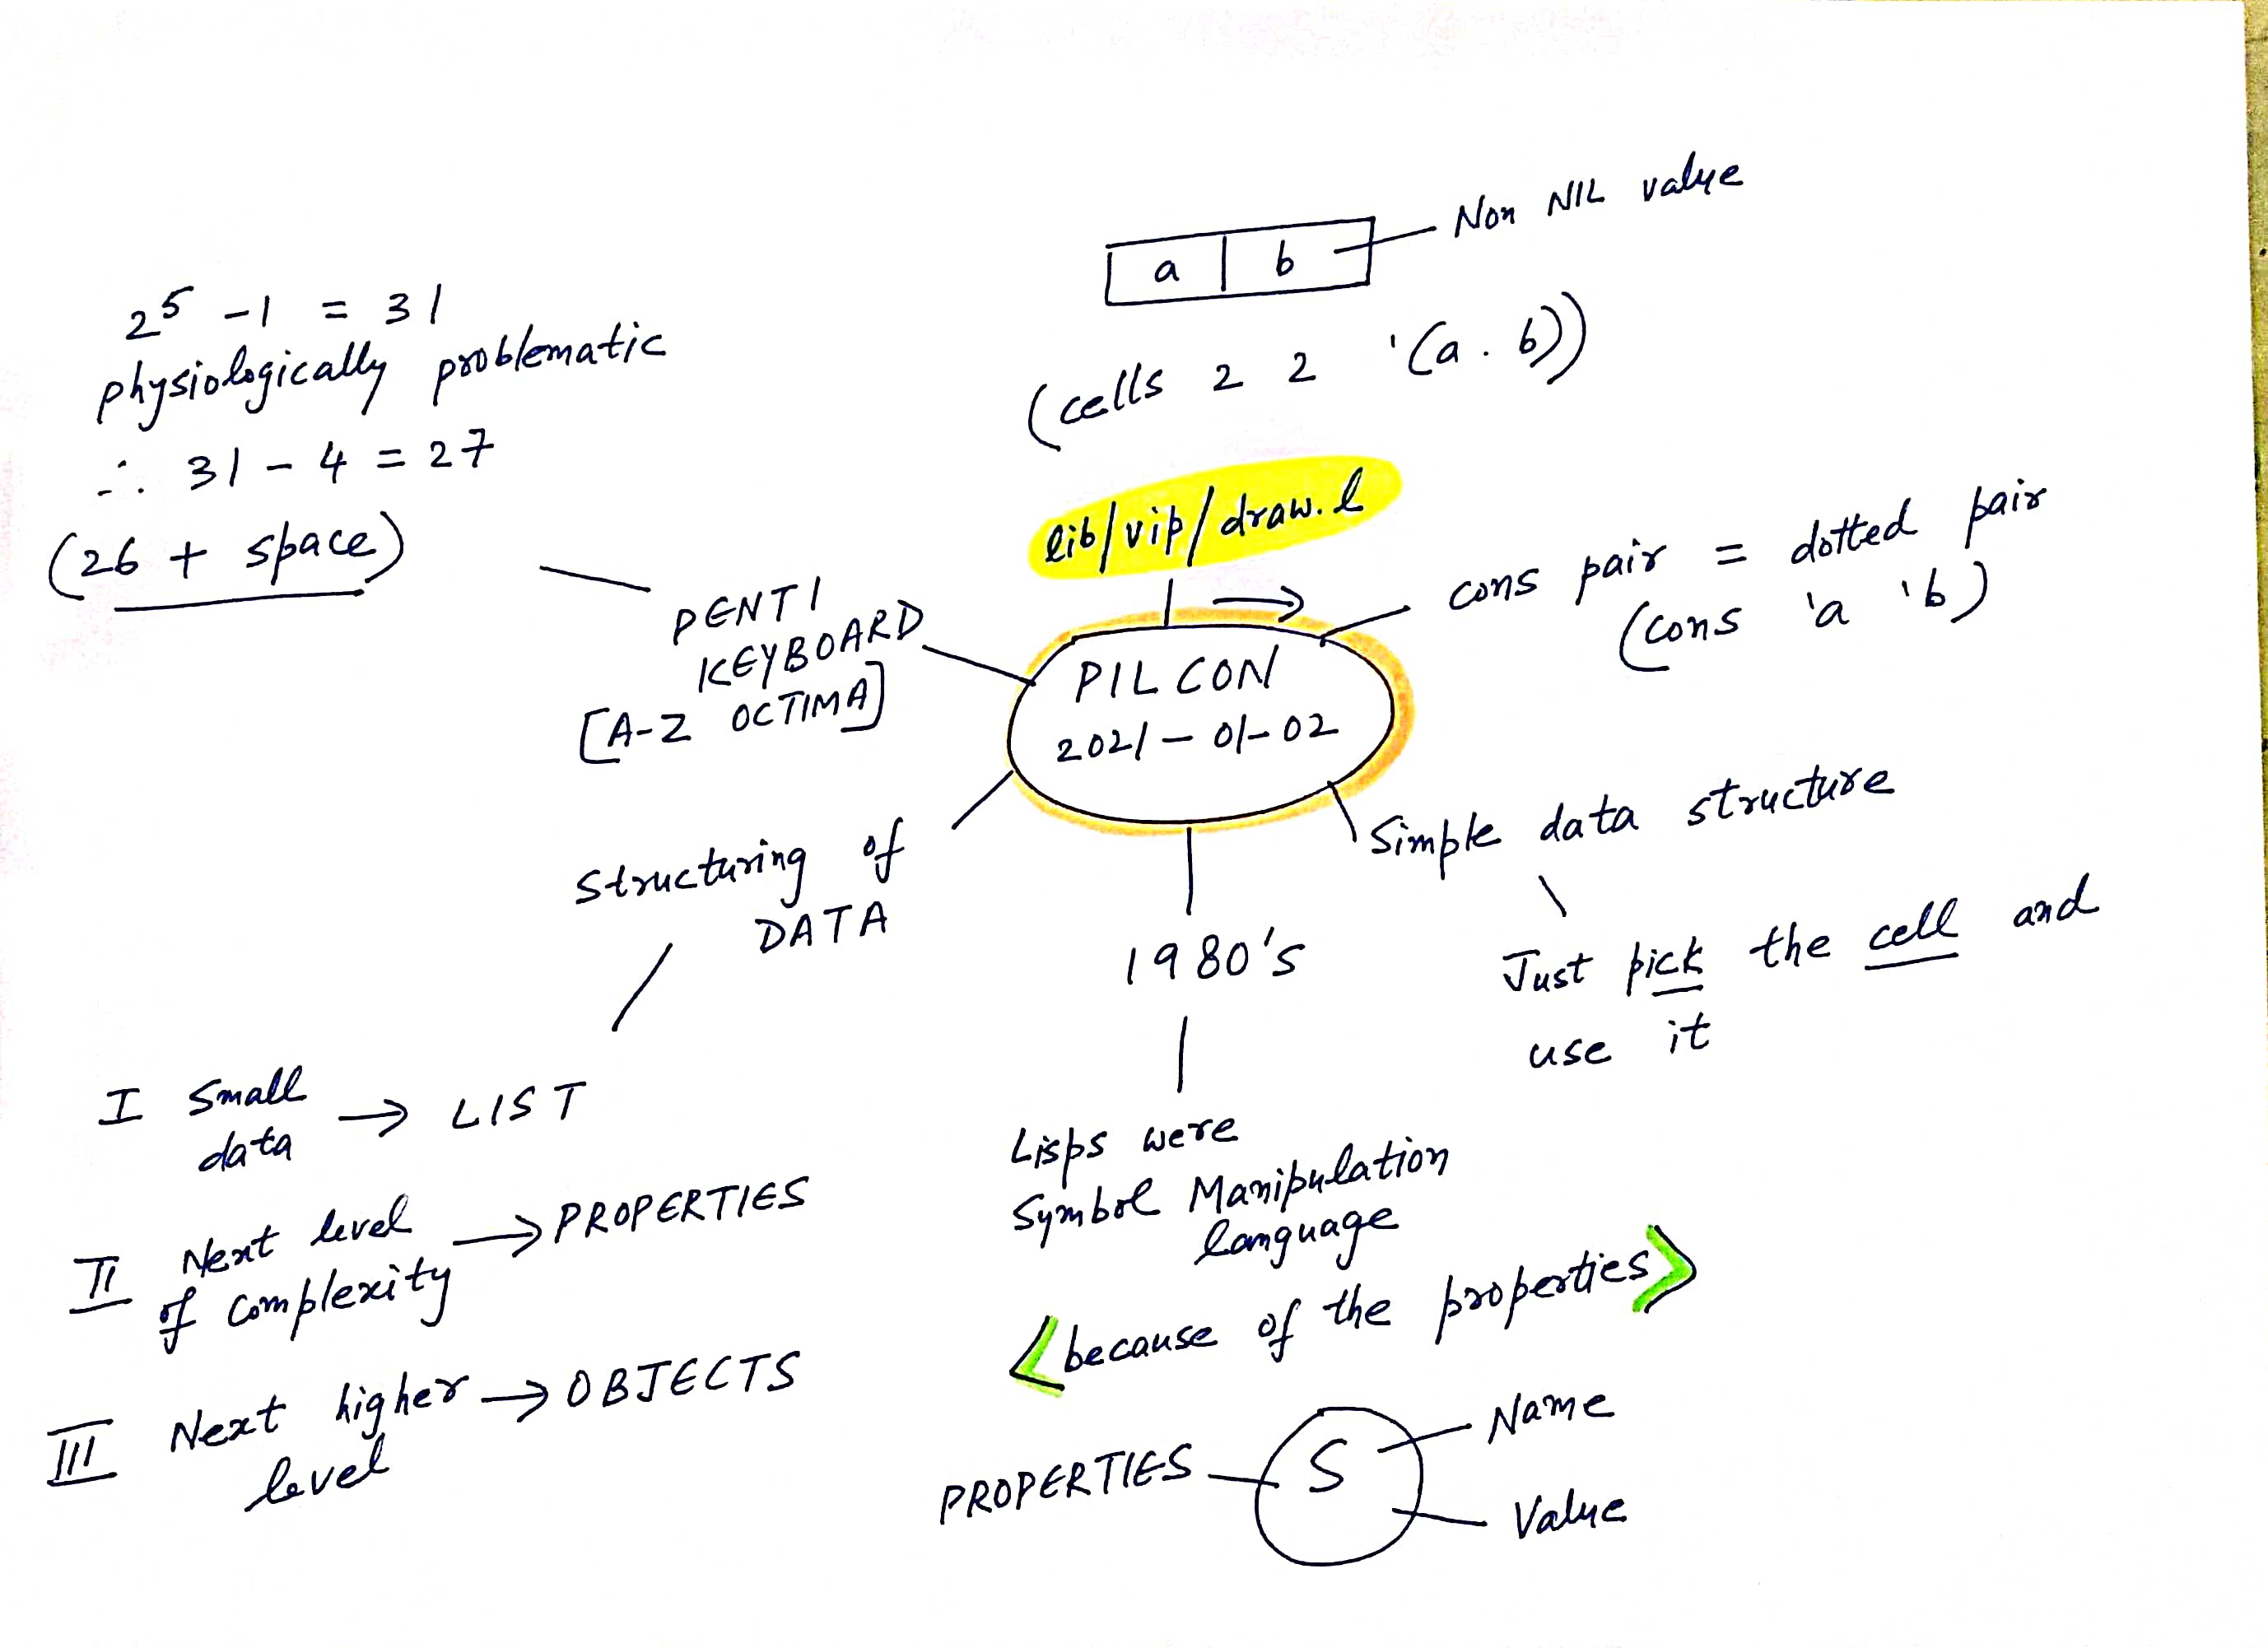 Non NIL value
a b
(cells 2 2 '(a . b))
lib/vip/draw.l
cons pair = dotted pair
(cons 'a 'b)
PIL CON
2021-01-02
Simple data structure
Just pick the cell and
use it
1980's
Lisps were
Symbol Manipulation
language
<because of the properties>
Name
PROPERTIES S
Value
Structuring of
DATA
I Small
data → LIST
II Next level
of complexity → PROPERTIES
III Next higher → OBJECTS
level
PENTI
KEYBOARD
[A-Z OCTIMA]
2⁵ - 1 = 31
physiologically problematic
∴ 31 - 4 = 27
(26 + space)